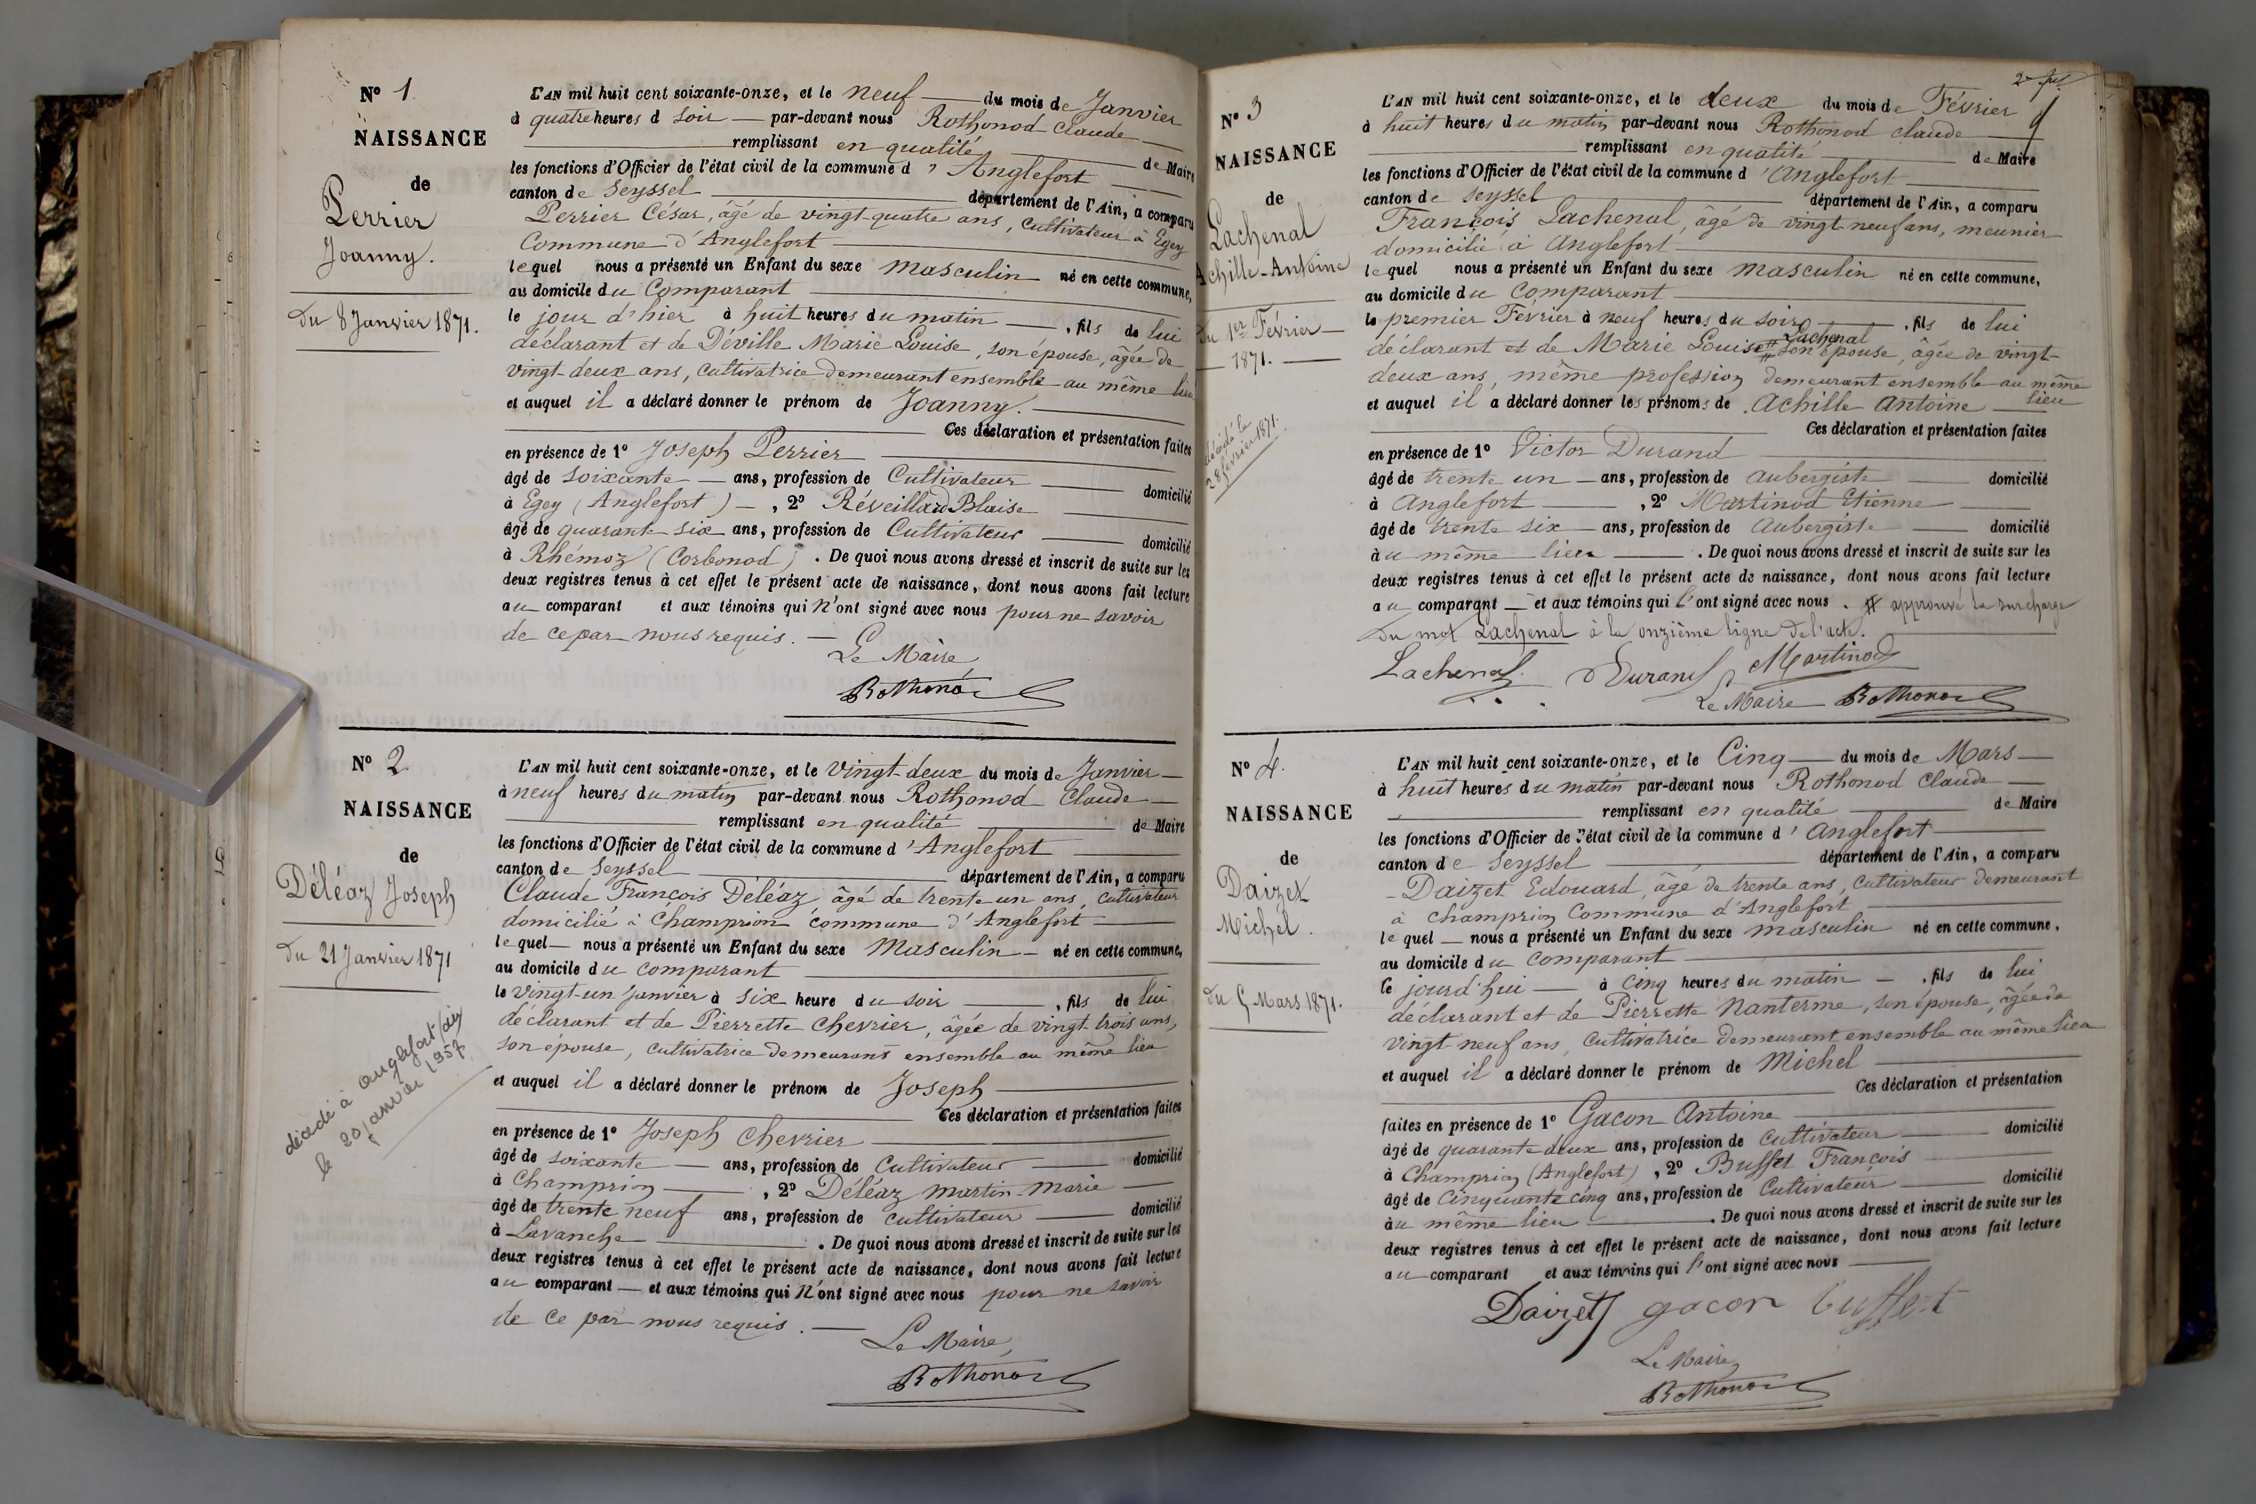 N° 1
NAISSANCE
de
Perrier
Joanny.
du 8 Janvier 1871.
L'AN mil huit cent soixante-onze, et le neuf du mois de Janvier
à quatre heures d soir par-devant nous Rothonod Claude
remplissant en qualité de Maire
les fonctions d'Officier de l'état civil de la commune d'Anglefort
canton de Seyssel département de l'Ain, a comparu
Perrier César, âgé de vingt-quatre ans, Cultivateur à Egey
Commune d'Anglefort
lequel nous a présenté un Enfant du sexe masculin né en cette commune,
au domicile du Comparant
le jour d'hier à huit heures du matin, fils de lui
déclarant et de Déville Marie Louise, son épouse, âgée de
vingt-deux ans, cultivatrice demeurant ensemble au même lieu
et auquel il a déclaré donner le prénom de Joanny.
Ces déclaration et présentation faites
en présence de 1° Joseph Perrier
âgé de soixante ans, profession de Cultivateur domicilié
à Egey (Anglefort), 2° Réveillard Blaise
âgé de quarante six ans, profession de Cultivateur domicilié
à Rhémoz (Corbonod). De quoi nous avons dressé et inscrit de suite sur les
deux registres tenus à cet effet le présent acte de naissance, dont nous avons fait lecture
au comparant et aux témoins qui n'ont signé avec nous pour ne savoir
de ce par nous requis.
Le Maire
Rothonod
N° 2
NAISSANCE
de
Déléaz Joseph
du 21 Janvier 1871
décédé à Anglefort (Ain)
le 20 janvier 1957
L'AN mil huit cent soixante-onze, et le vingt-deux du mois de Janvier
à neuf heures du matin par-devant nous Rothonod Claude
remplissant en qualité de Maire
les fonctions d'Officier de l'état civil de la commune d'Anglefort
canton de Seyssel département de l'Ain, a comparu
Claude François Déléaz, âgé de trente un ans, cultivateur
domicilié à Champrion commune d'Anglefort
lequel nous a présenté un Enfant du sexe Masculin né en cette commune,
au domicile du comparant
le vingt-un Janvier à six heure du soir, fils de lui
déclarant et de Pierrette Chevrier, âgée de vingt trois ans,
son épouse, cultivatrice demeurant ensemble au même lieu
et auquel il a déclaré donner le prénom de Joseph
Ces déclaration et présentation faites
en présence de 1° Joseph Chevrier
âgé de soixante ans, profession de Cultivateur domicilié
à Champrion, 2° Déléaz Martin-Marie
âgé de trente neuf ans, profession de cultivateur domicilié
à Lavanche. De quoi nous avons dressé et inscrit de suite sur les
deux registres tenus à cet effet le présent acte de naissance, dont nous avons fait lecture
au comparant et aux témoins qui n'ont signé avec nous pour ne savoir
de ce par nous requis.
Le Maire,
Rothonod
N° 3
NAISSANCE
de
Lachenal
Achille-Antoine
Du 1er Février
1871.
décédé le
28 février 1871.
L'AN mil huit cent soixante-onze, et le deux du mois de Février
à huit heures du matin par-devant nous Rothonod Claude
remplissant en qualité de Maire
les fonctions d'Officier de l'état civil de la commune d'Anglefort
canton de Seyssel département de l'Ain, a comparu
François Lachenal, âgé de vingt-neuf ans, meunier
domicilié à Anglefort
lequel nous a présenté un Enfant du sexe masculin né en cette commune,
au domicile du Comparant
le premier Février à neuf heures du soir, fils de lui
déclarant et de Marie Louise # Lachenal # son épouse, âgée de vingt-
deux ans, même profession demeurant ensemble au même
et auquel il a déclaré donner les prénoms de Achille Antoine lieu
Ces déclaration et présentation faites
en présence de 1° Victor Durand
âgé de trente un ans, profession de aubergiste domicilié
à Anglefort, 2° Martinod Etienne
âgé de trente six ans, profession de aubergiste domicilié
au même lieu. De quoi nous avons dressé et inscrit de suite sur les
deux registres tenus à cet effet le présent acte de naissance, dont nous avons fait lecture
au comparant et aux témoins qui l'ont signé avec nous. # approuvé la surcharge
du mot Lachenal à la onzième ligne de l'acte.
Lachenal Durand Martinod
Le Maire Rothonod
N° 4.
NAISSANCE
de
Daizet
Michel.
du 5 Mars 1871.
L'AN mil huit cent soixante-onze, et le Cinq du mois de Mars
à huit heures du matin par-devant nous Rothonod Claude
remplissant en qualité de Maire
les fonctions d'Officier de l'état civil de la commune d'Anglefort
canton de Seyssel département de l'Ain, a comparu
Daizet Edouard, âgé de trente ans, Cultivateur demeurant
à Champrion Commune d'Anglefort
lequel nous a présenté un Enfant du sexe masculin né en cette commune,
au domicile du Comparant
le jourd'hui à cinq heures du matin, fils de lui
déclarant et de Pierrette Nanterme, son épouse, âgée de
vingt-neuf ans, Cultivatrice demeurant ensemble au même lieu
et auquel il a déclaré donner le prénom de Michel
Ces déclaration et présentation
faites en présence de 1° Gacon Antoine
âgé de quarante deux ans, profession de Cultivateur domicilié
à Champrion (Anglefort), 2° Buffet François
âgé de Cinquante cinq ans, profession de Cultivateur domicilié
au même lieu. De quoi nous avons dressé et inscrit de suite sur les
deux registres tenus à cet effet le présent acte de naissance, dont nous avons fait lecture
au comparant et aux témoins qui l'ont signé avec nous
Daizet gacon buffet
Le Maire,
Rothonod